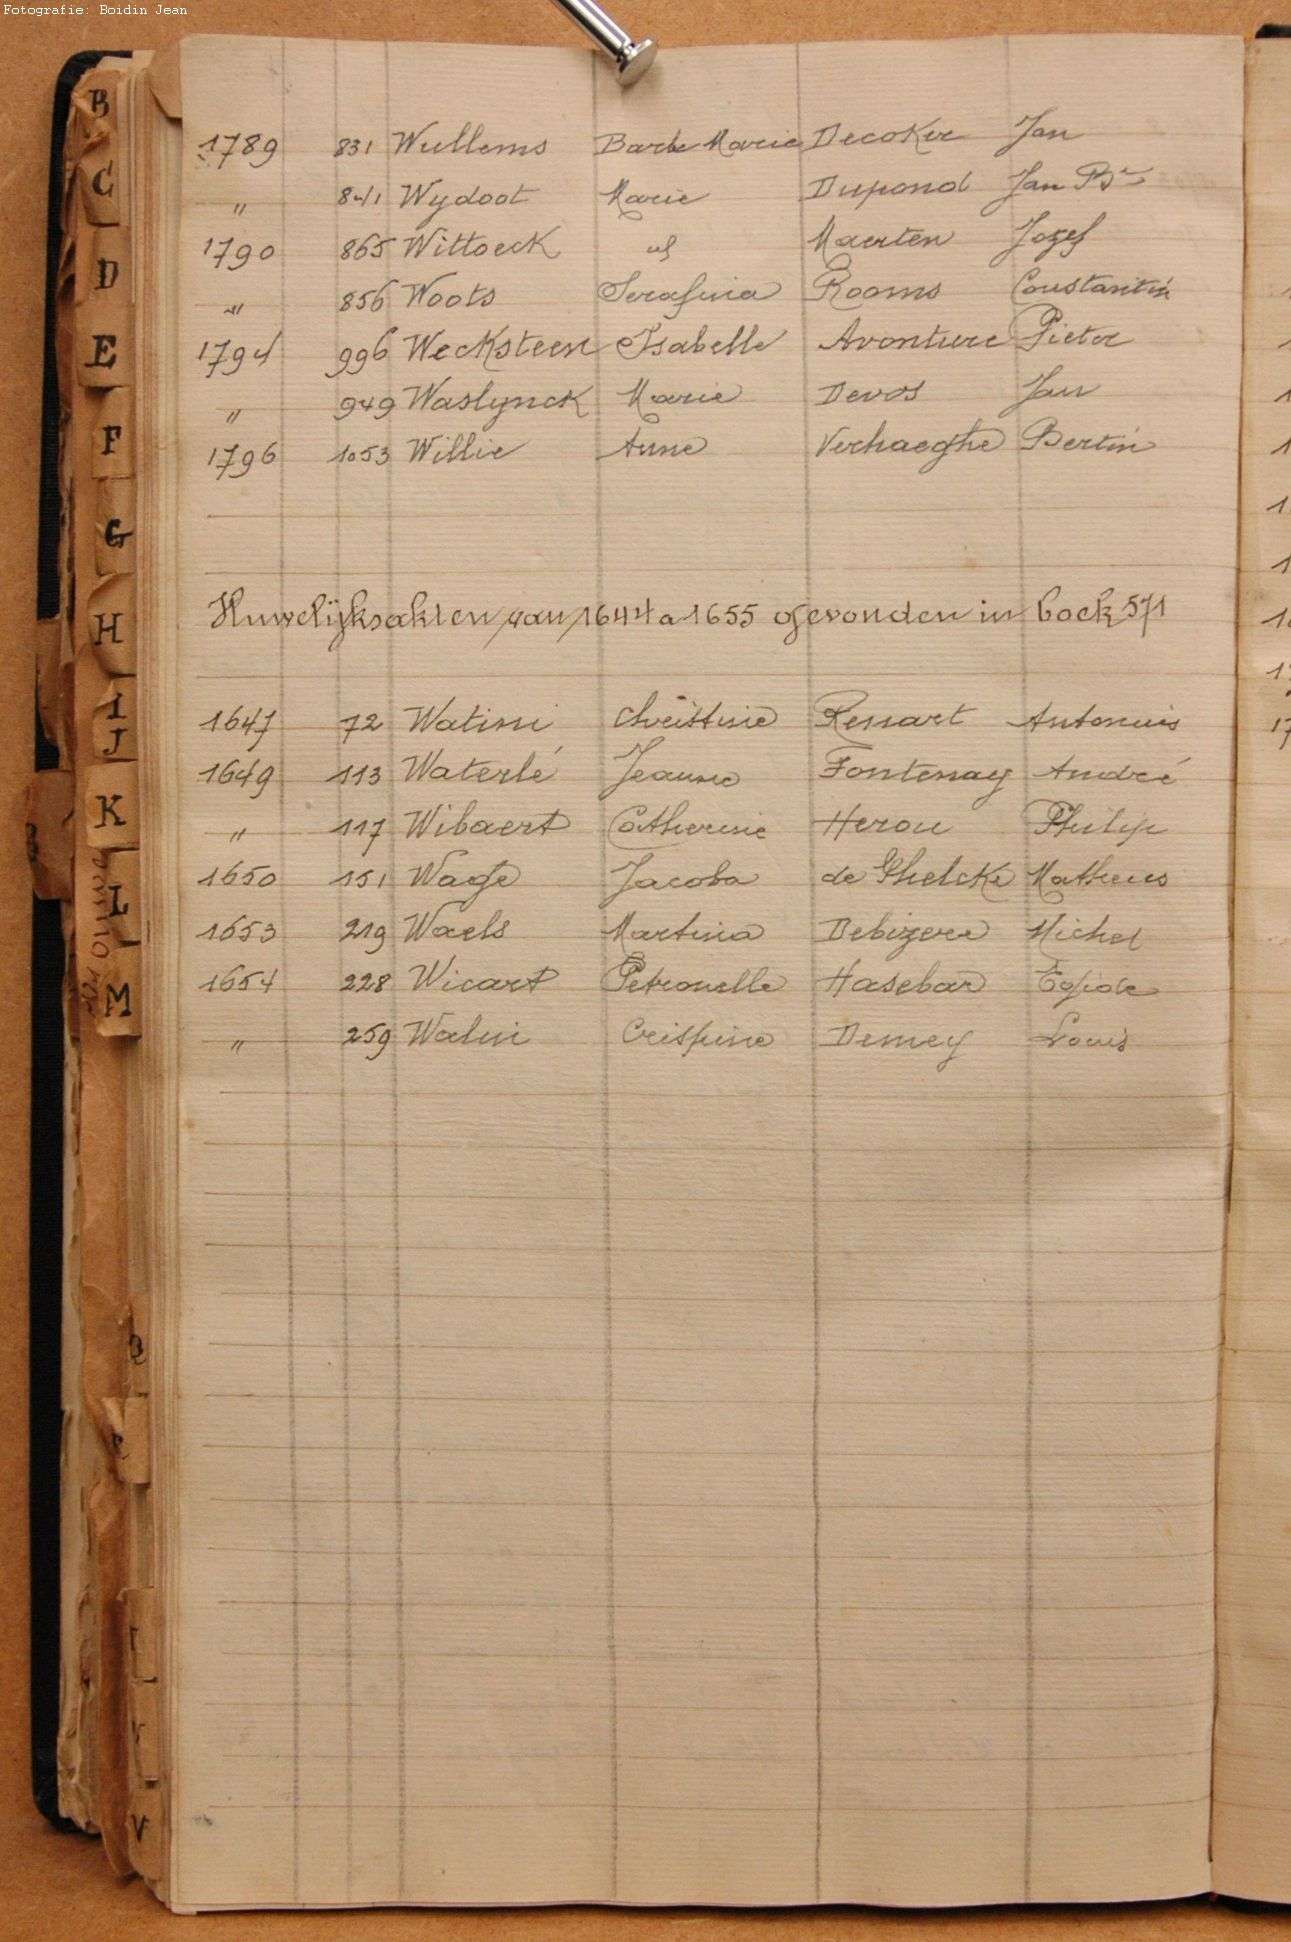 Fotografie: Boidin Jean
1789 831 Wullems Barbe Marie Decoker Jan
" 841 Wydoot Marie Dupond Jan Bte
1790 865 Wittoeck id Maerten Jozef
" 856 Woots Serafina Rooms Constantin
1794 996 Wecksteen Isabelle Avonture Pieter
" 949 Waslynck Marie Devos Jan
1796 1053 Willie Anne Verhaeghe Bertin
Huwelijksakten van 1644 a 1655 gevonden in boek 571
1647 72 Watini Christine Renart Antonius
1649 113 Waterlé Jeanne Fontenay André
" 117 Wibaert Catherine Herou Philip
1650 151 Wage Jacoba de Ghelcke Matheus
1653 219 Waels Martina Debizere Michel
1654 228 Wicart Petronelle Hasebar Egide
" 259 Walui Crispine Demey Louis
B
C
D
E
F
G
H
I
J
K
L
M
V